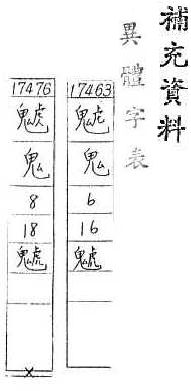 補充資料
異體字表
17463
鬼
6
16
17476
鬼
8
18